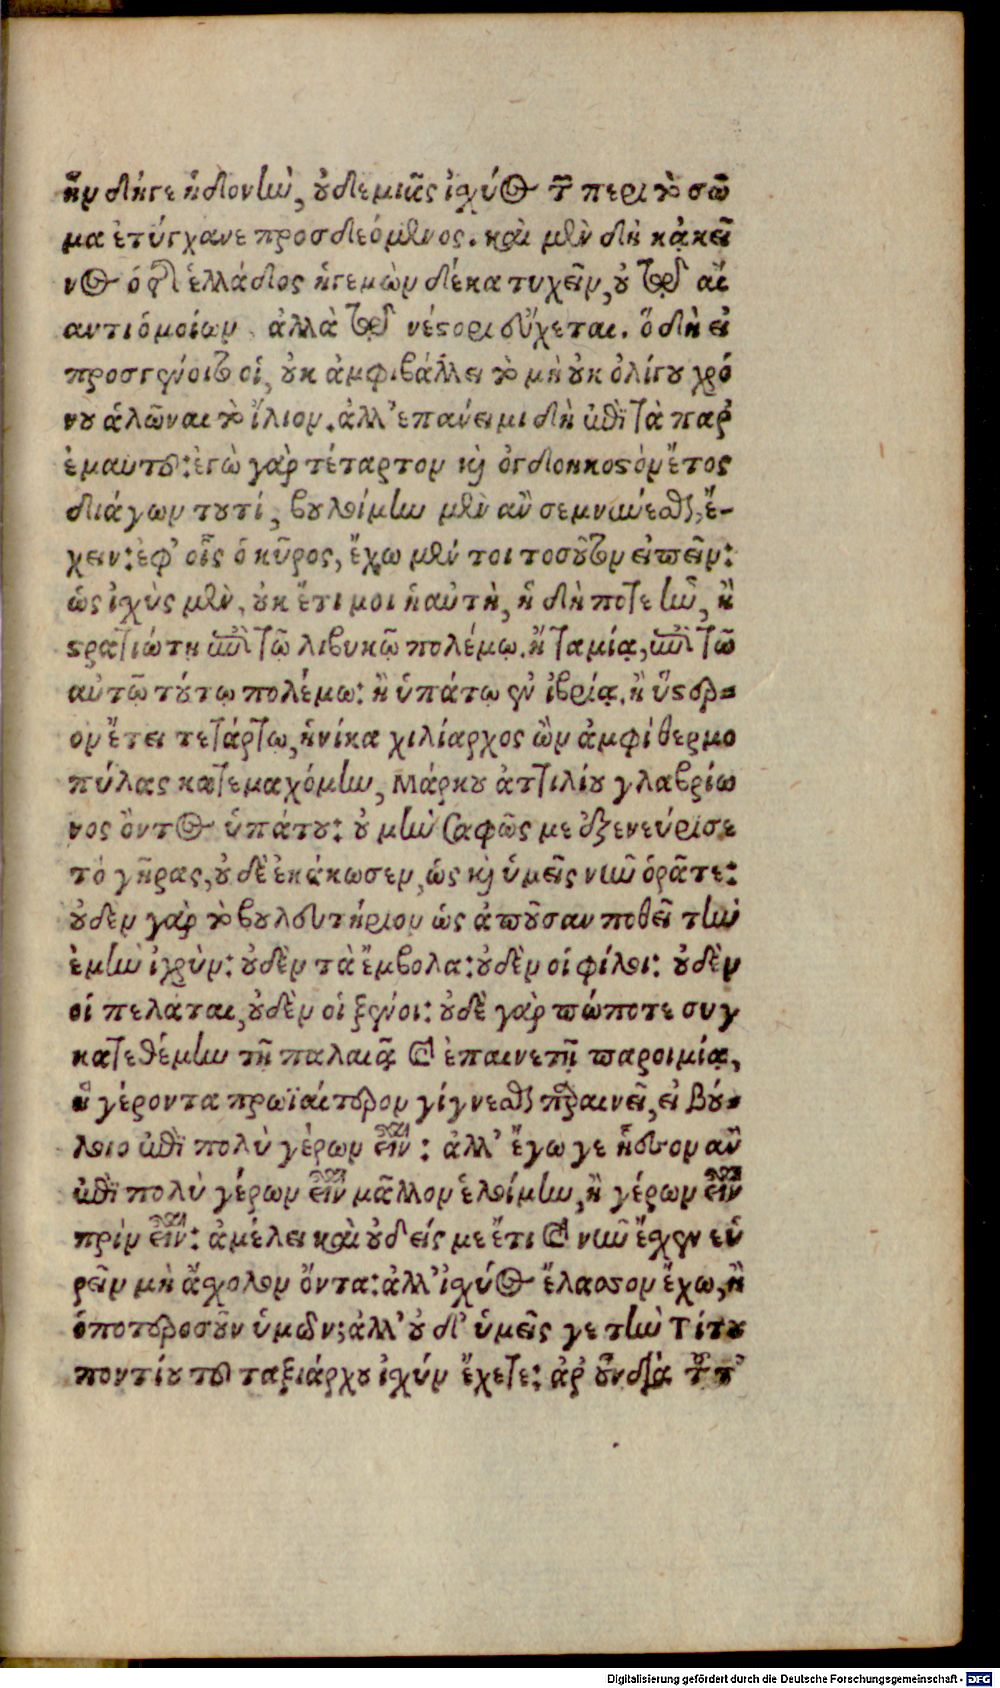 ἦν δήγε ἡδονὴν, οὐδεμιᾶς ἰσχύος τῆς περὶ τὸ σῶ
μα ἐτύγχανε προσδεόμενος. καὶ μὲν δὴ κἀκεῖ
νος ὁ τῆς ἑλλάδος ἡγεμὼν δέκα τυχεῖν, οὐ τῶν αἴ
αντι ὁμοίων, ἀλλὰ τῶν νέστορι εὔχεται. ὃ δὴ εἰ
προσγένοιτο οἱ, οὐκ ἀμφιβάλλει τὸ μὴ οὐκ ὀλίγου χρό
νου ἁλῶναι τὸ ἴλιον. ἀλλ' ἐπάνειμι δὴ ἐπὶ τὰ παρ'
ἐμαυτοῦ: ἐγὼ γὰρ τέταρτον καὶ ὀγδοηκοστὸν ἔτος
διάγων τουτί, βουλοίμην μὲν ἂν σεμνύνεσθαι, ἔ-
χειν: ἐφ' οἷς ὁ κῦρος, ἔχω μέν τοι τοσοῦτον εἰπεῖν:
ὡς ἰσχὺς μὲν, οὐκ ἔτι μοι ἡ αὐτὴ, ἣ δὴ ποτε ἦν, ἢ
στρατιώτῃ ἐπὶ τῷ λιβυκῷ πολέμῳ. ἢ ταμίᾳ, ἐπὶ τῷ
αὐτῷ τούτῳ πολέμῳ: ἢ ὑπάτῳ ἐν ἰβρίᾳ. ἢ ὕστερ-
ον ἔτει τετάρτῳ, ἡνίκα χιλίαρχος ὢν ἀμφὶ θερμο
πύλας κατεμαχόμην, Μάρκου ἀτιλίου γλαβρίω
νος ὄντος ὑπάτου: οὐ μὴν σαφῶς με ἐξενεύρισε
τὸ γῆρας, οὐδὲ ἐκάκωσεν, ὡς καὶ ὑμεῖς νῦν ὁρᾶτε:
οὐδὲν γὰρ τὸ βουλευτήριον ὡς ἀποῦσαν ποθεῖ τὴν
ἐμὴν ἰσχύν: οὐδὲν τὰ ἔμβολα: οὐδὲν οἱ φίλοι: οὐδὲν
οἱ πελάται, οὐδὲν οἱ ξένοι: οὐδὲ γὰρ πώποτε συγ
κατεθέμην τῇ παλαιᾷ καὶ ἐπαινετῇ παροιμίᾳ,
ἣ γέροντα πρωϊαίτερον γίγνεσθαι παραινεῖ, εἰ βού-
λοιο ἐπὶ πολὺ γέρων εἶναι: ἀλλ' ἔγωγε ἧττον ἂν
ἐπὶ πολὺ γέρων εἶναι μᾶλλον ἑλοίμην, ἢ γέρων εἶναι
πρὶν εἶναι: ἀμέλει καὶ οὐδείς με ἔτι καὶ νῦν ἔσχεν εὑ
ρεῖν μὴ ἄσχολον ὄντα: ἀλλ' ἰσχύος ἔλασσον ἔχω, ἢ
ὁποτεροσοῦν ὑμῶν; ἀλλ' οὐδ' ὑμεῖς γε τὴν Τίτου
ποντίου τοῦ ταξιάρχου ἰσχύν ἔχετε: ἆρ' οὖν διὰ